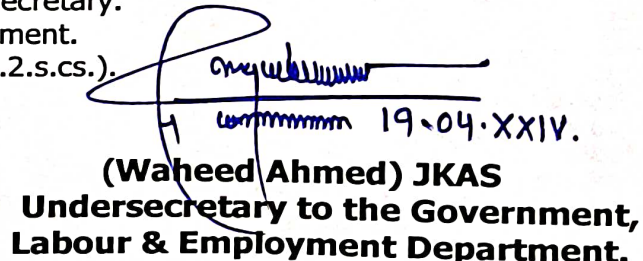 ecretary.
ment.
.2.s.cs.).
19.04.XXIV.
(Waheed Ahmed) JKAS
Undersecretary to the Government,
Labour & Employment Department.